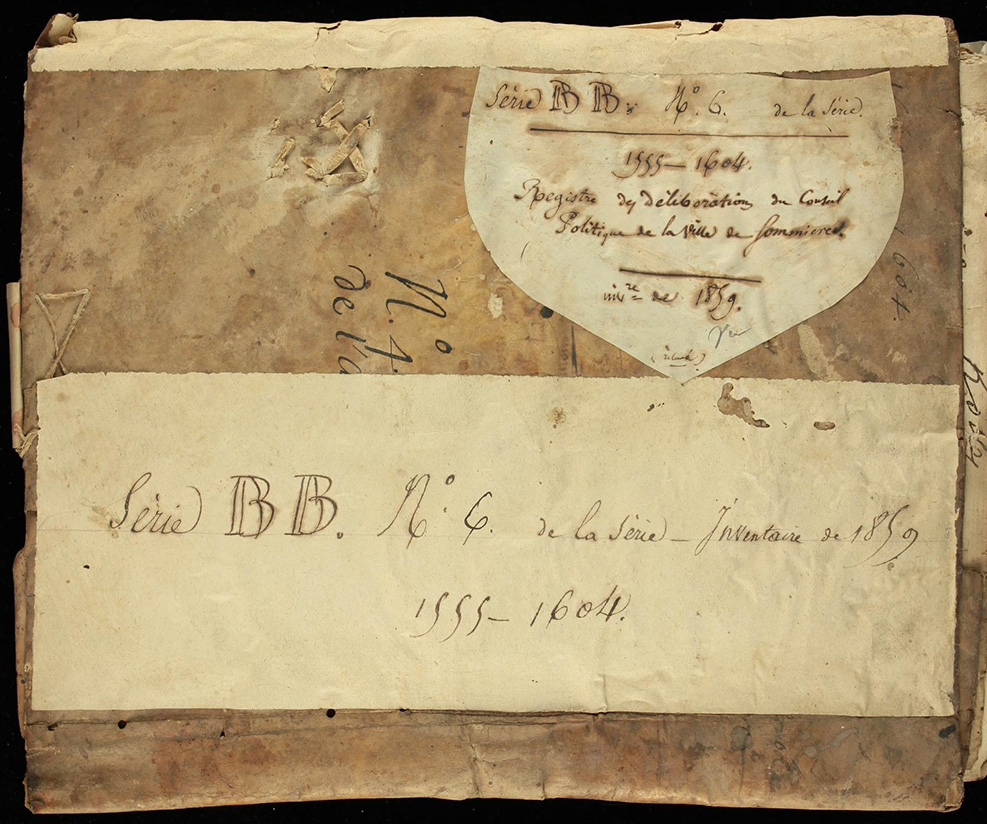 Série BB. N° 6. de la Série.
1555 — 1604.
Registre des délibérations du Conseil
Politique de la Ville de Sommieres.
invre de 1859.
Vu
N.°
de la
1604.
Série BB. N.° 6. de la Série — Inventaire de 1859
1555 — 1604.